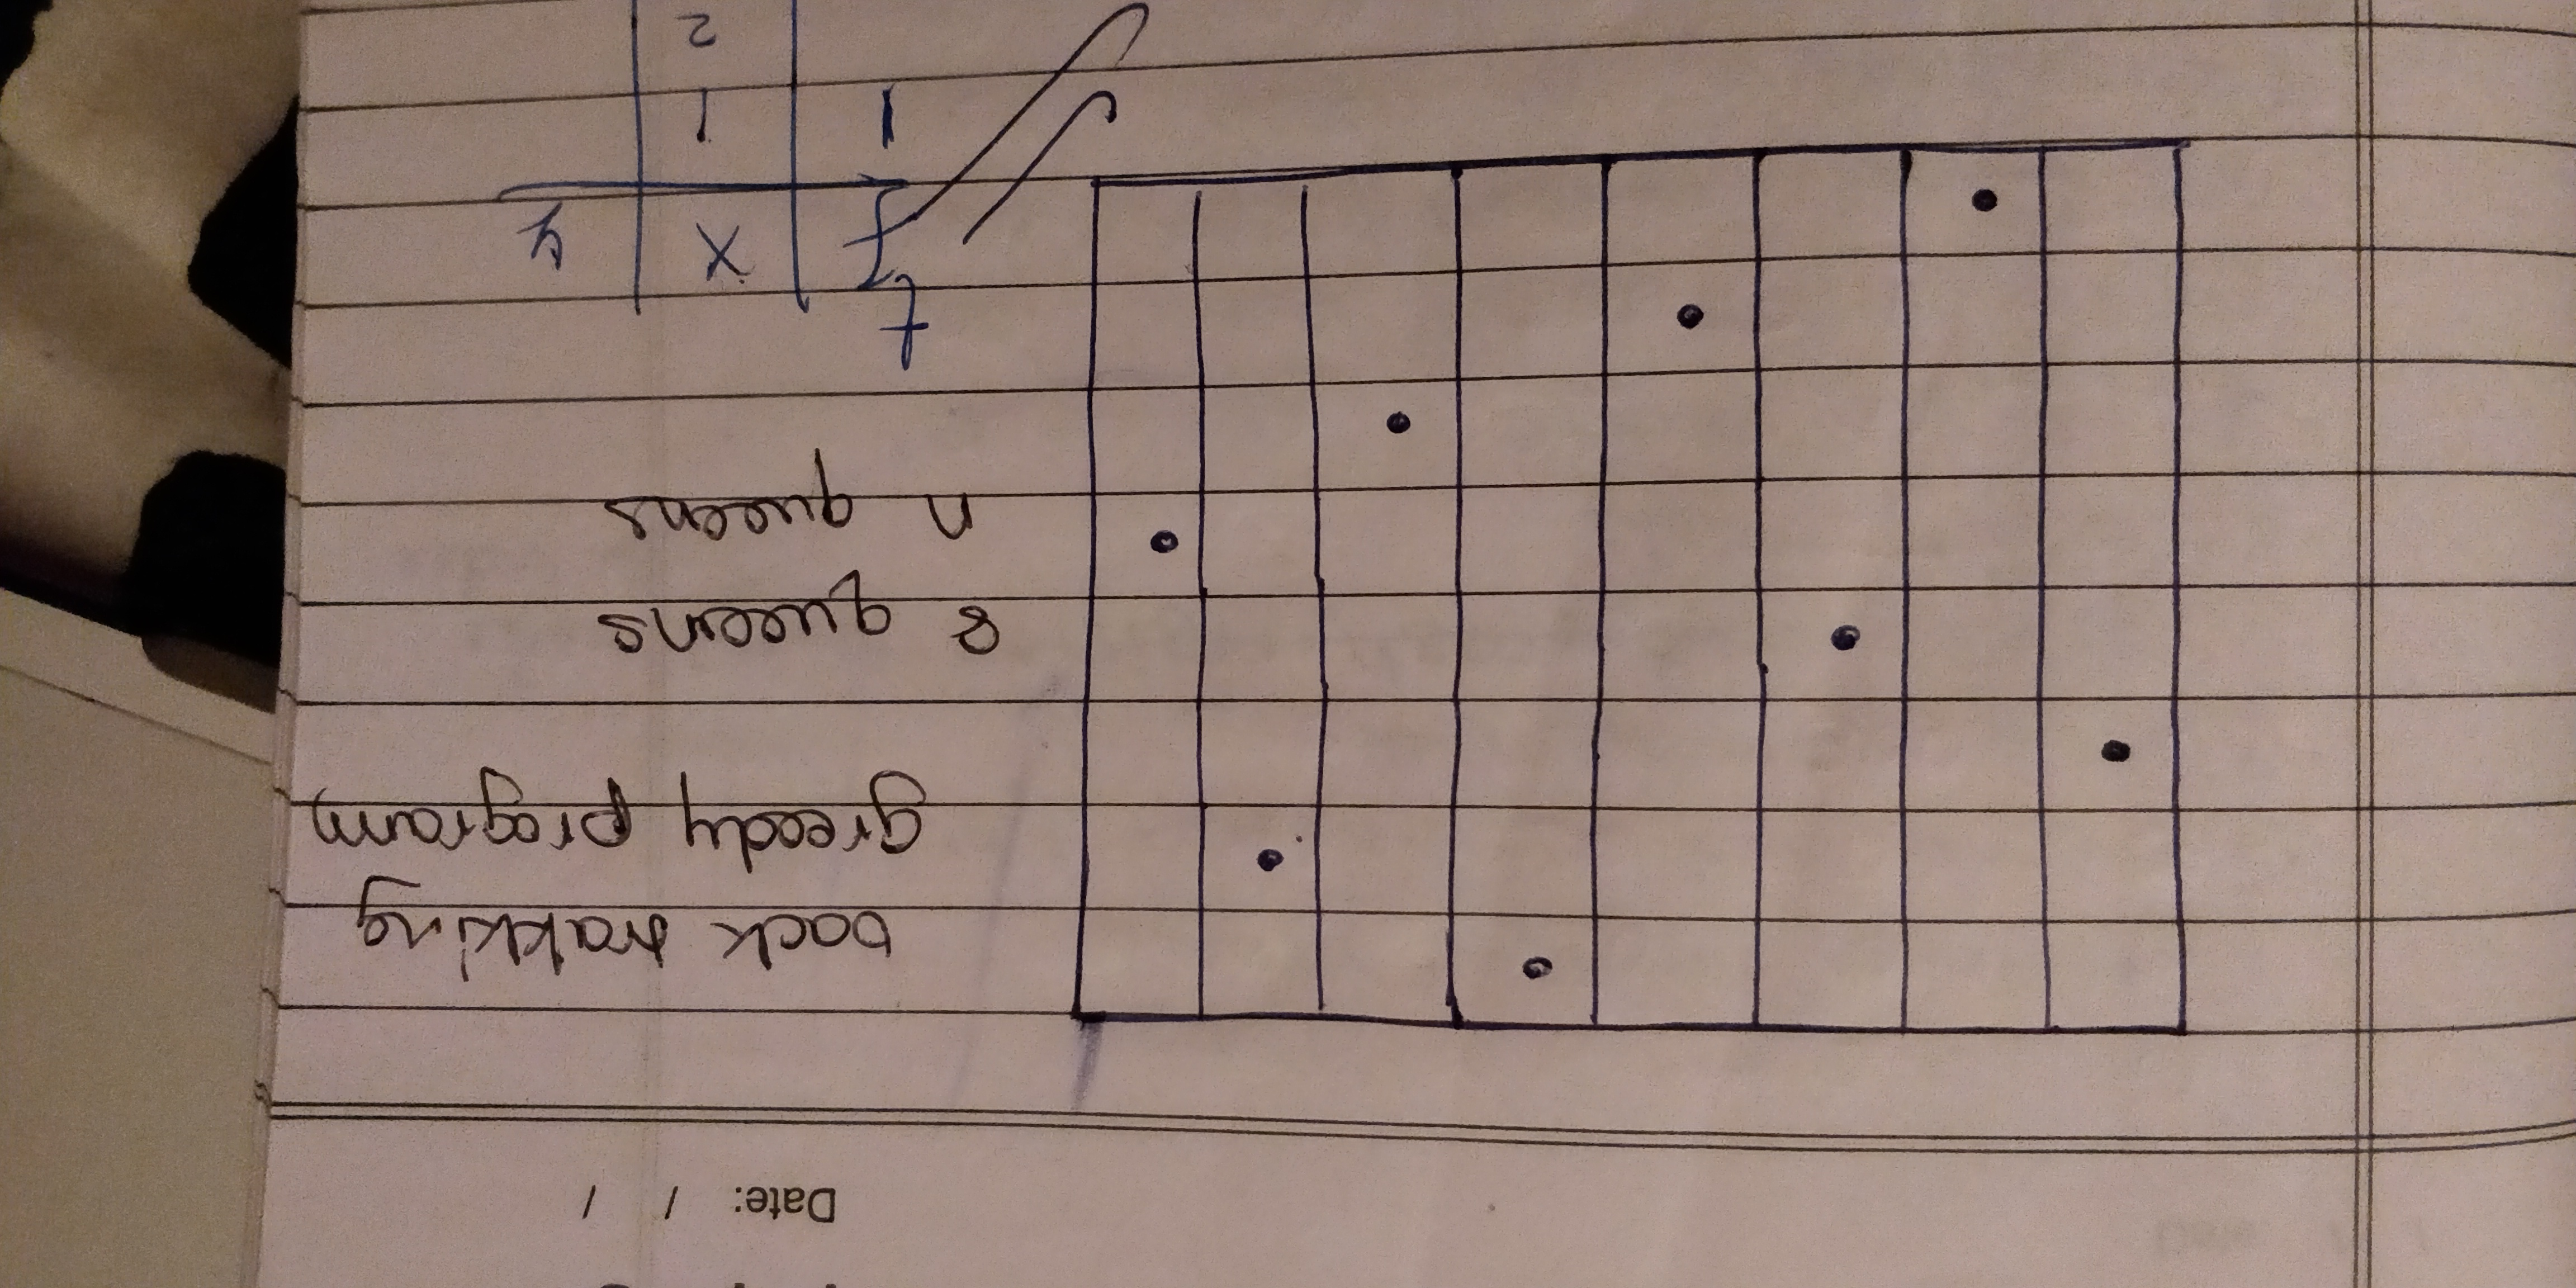 Date: / /
back trakking
greedy program
8 queens
n queens
t
f X y
1 1
2